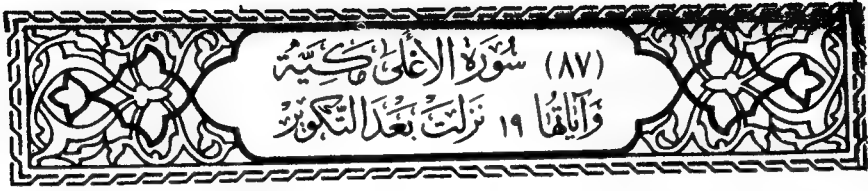 (٨٧) سُورَةُ الأَعْلَىٰ مَكِّيَّةٌ
وَآيَاتُهَا ١٩ نَزَلَتْ بَعْدَ التَّكْوِيرِ